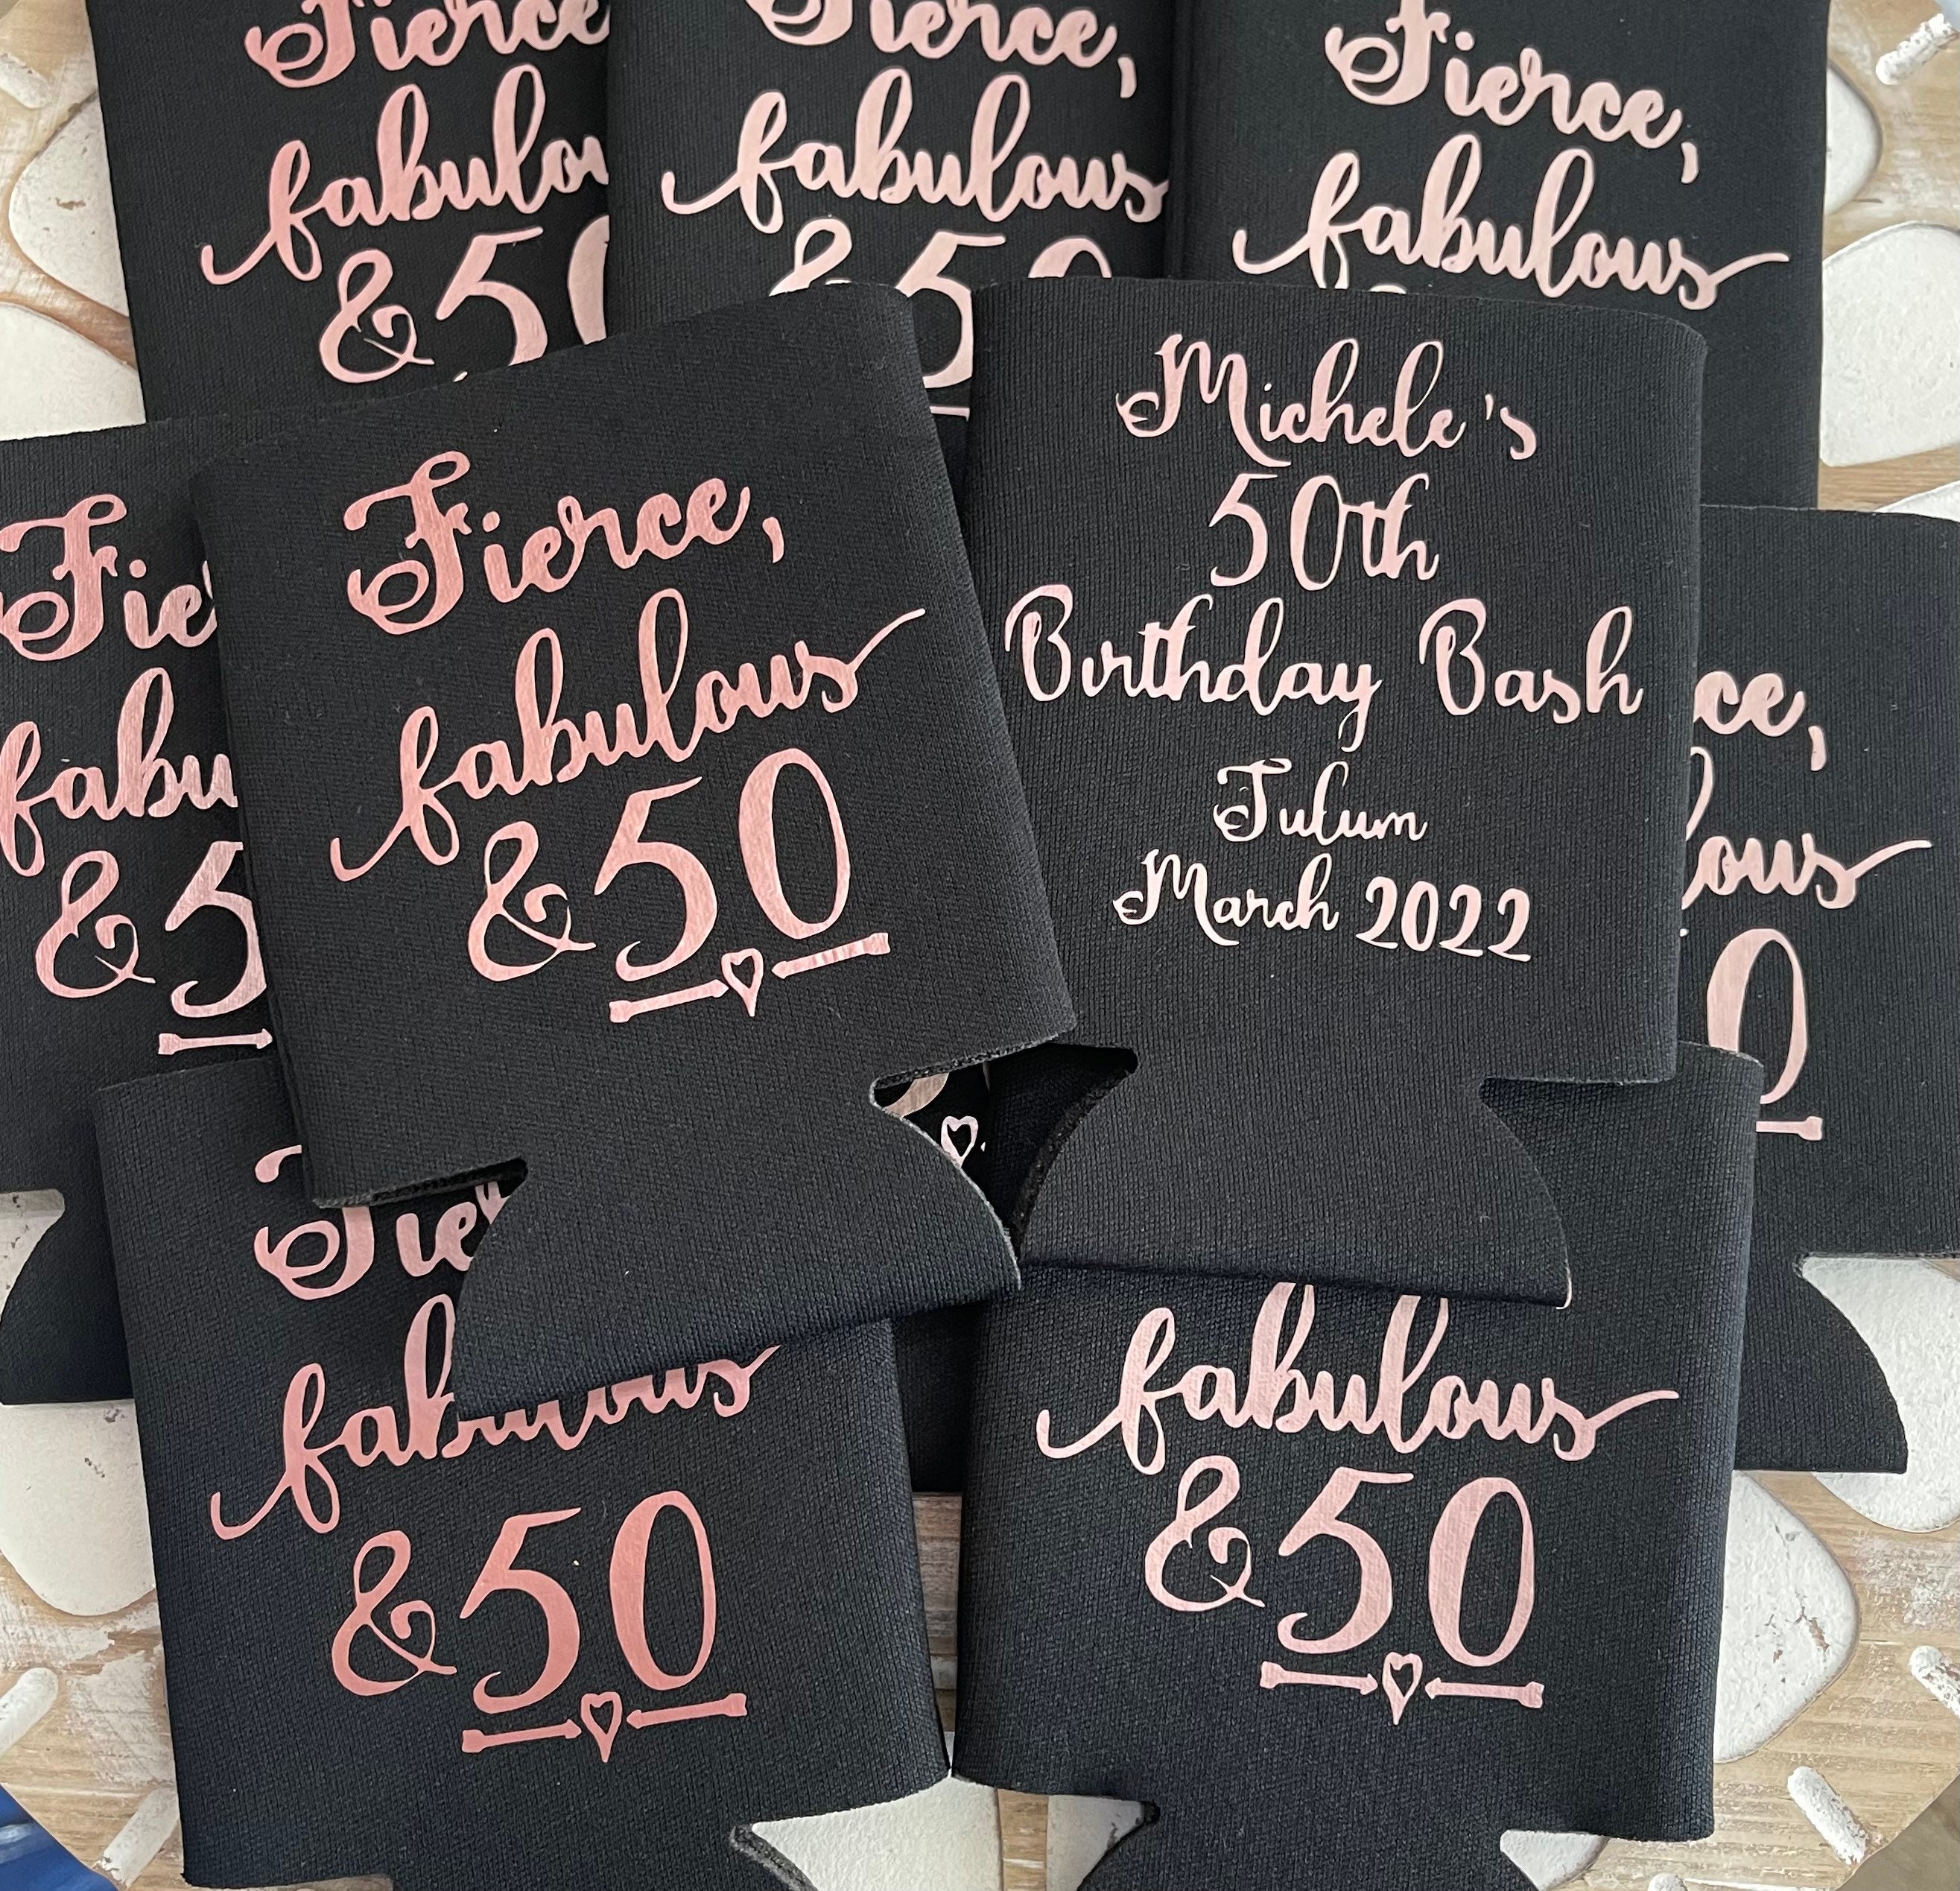 Fierce
fabulou
& 50
Fierce,
fabulous
& 50
Fierce,
fabulous
Fie
fabu
& 5
Fierce,
fabulous
& 50
Michele's
50th
Birthday Bash
Tulum
March 2022
ce,
lous
0
Fie
fabulous
& 50
fabulous
& 50